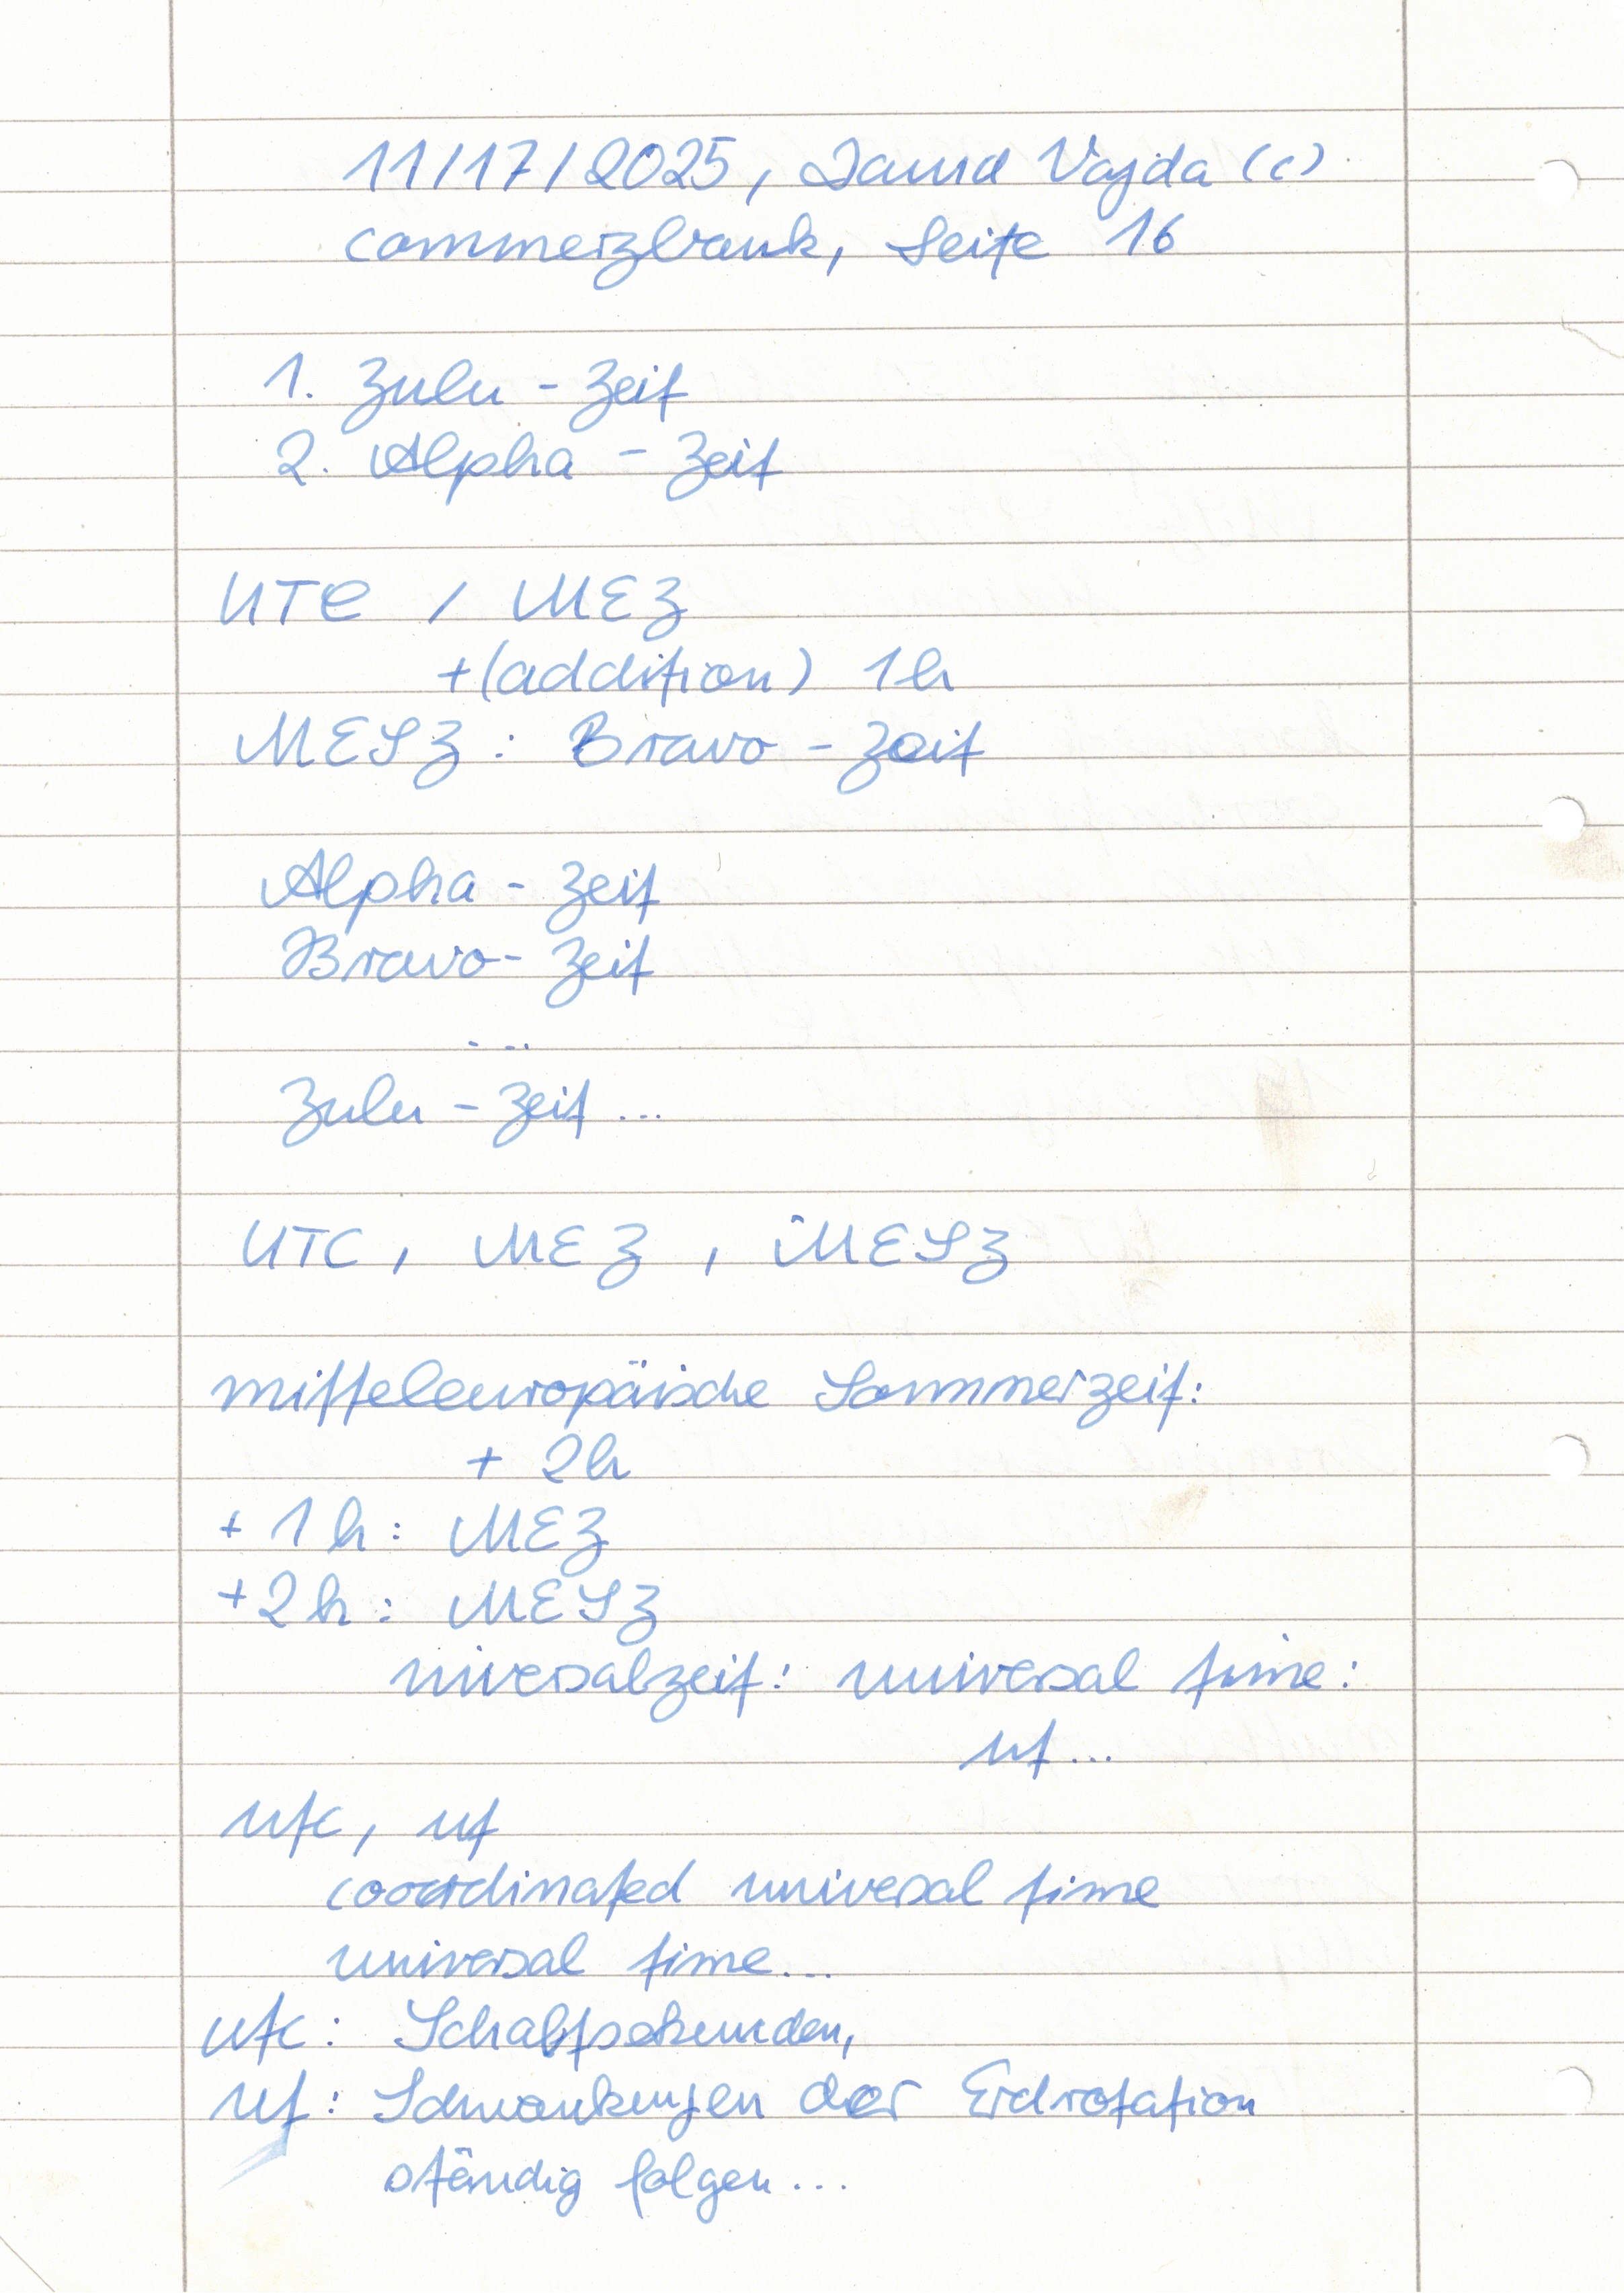 11/17/2025, David Vajda (c)
commerzbank, Seite 16
1. Zulu - Zeit
2. Alpha - Zeit
UTC / MEZ
+(addition) 1h
MESZ : Bravo - Zeit
Alpha - Zeit
Bravo - Zeit
...
Zulu - Zeit ...
UTC, MEZ, MESZ
mitteleuropäische Sommerzeit:
+ 2h
+ 1h: MEZ
+2h: MESZ
niversalzeit: universal time:
ut...
utc, ut
coordinated universal time
universal time...
utc: Schaltsekunden,
ut: Schwankungen der Erdrotation
ständig folgen...